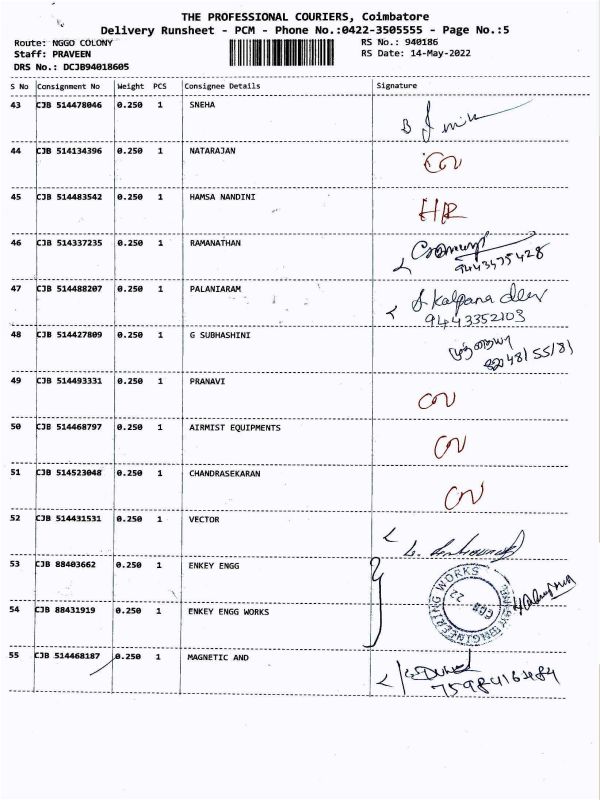 THE PROFESSIONAL COURIERS, Coimbatore
Delivery Runsheet - PCM - Phone No.:0422-3505555 - Page No.:5
Route: NGGO COLONY RS No.: 940186
Staff: PRAVEEN RS Date: 14-May-2022
DRS No.: DCJB94018605
S No Consignment No Weight PCS Consignee Details Signature
43 CJB 514478046 0.250 1 SNEHA
44 CJB 514134396 0.250 1 NATARAJAN
45 CJB 514483542 0.250 1 HAMSA NANDINI HR
46 CJB 514337235 0.250 1 RAMANATHAN
9443475428
47 CJB 514488207 0.250 1 PALANIARAM S. Kalpana devi
9443352103
48 CJB 514427809 0.250 1 G SUBHASHINI
49 CJB 514493331 0.250 1 PRANAVI
50 CJB 514468797 0.250 1 AIRMIST EQUIPMENTS
51 CJB 514523048 0.250 1 CHANDRASEKARAN
52 CJB 514431531 0.250 1 VECTOR
53 CJB 88403662 0.250 1 ENKEY ENGG
54 CJB 88431919 0.250 1 ENKEY ENGG WORKS
55 CJB 514468187 0.250 1 MAGNETIC AND